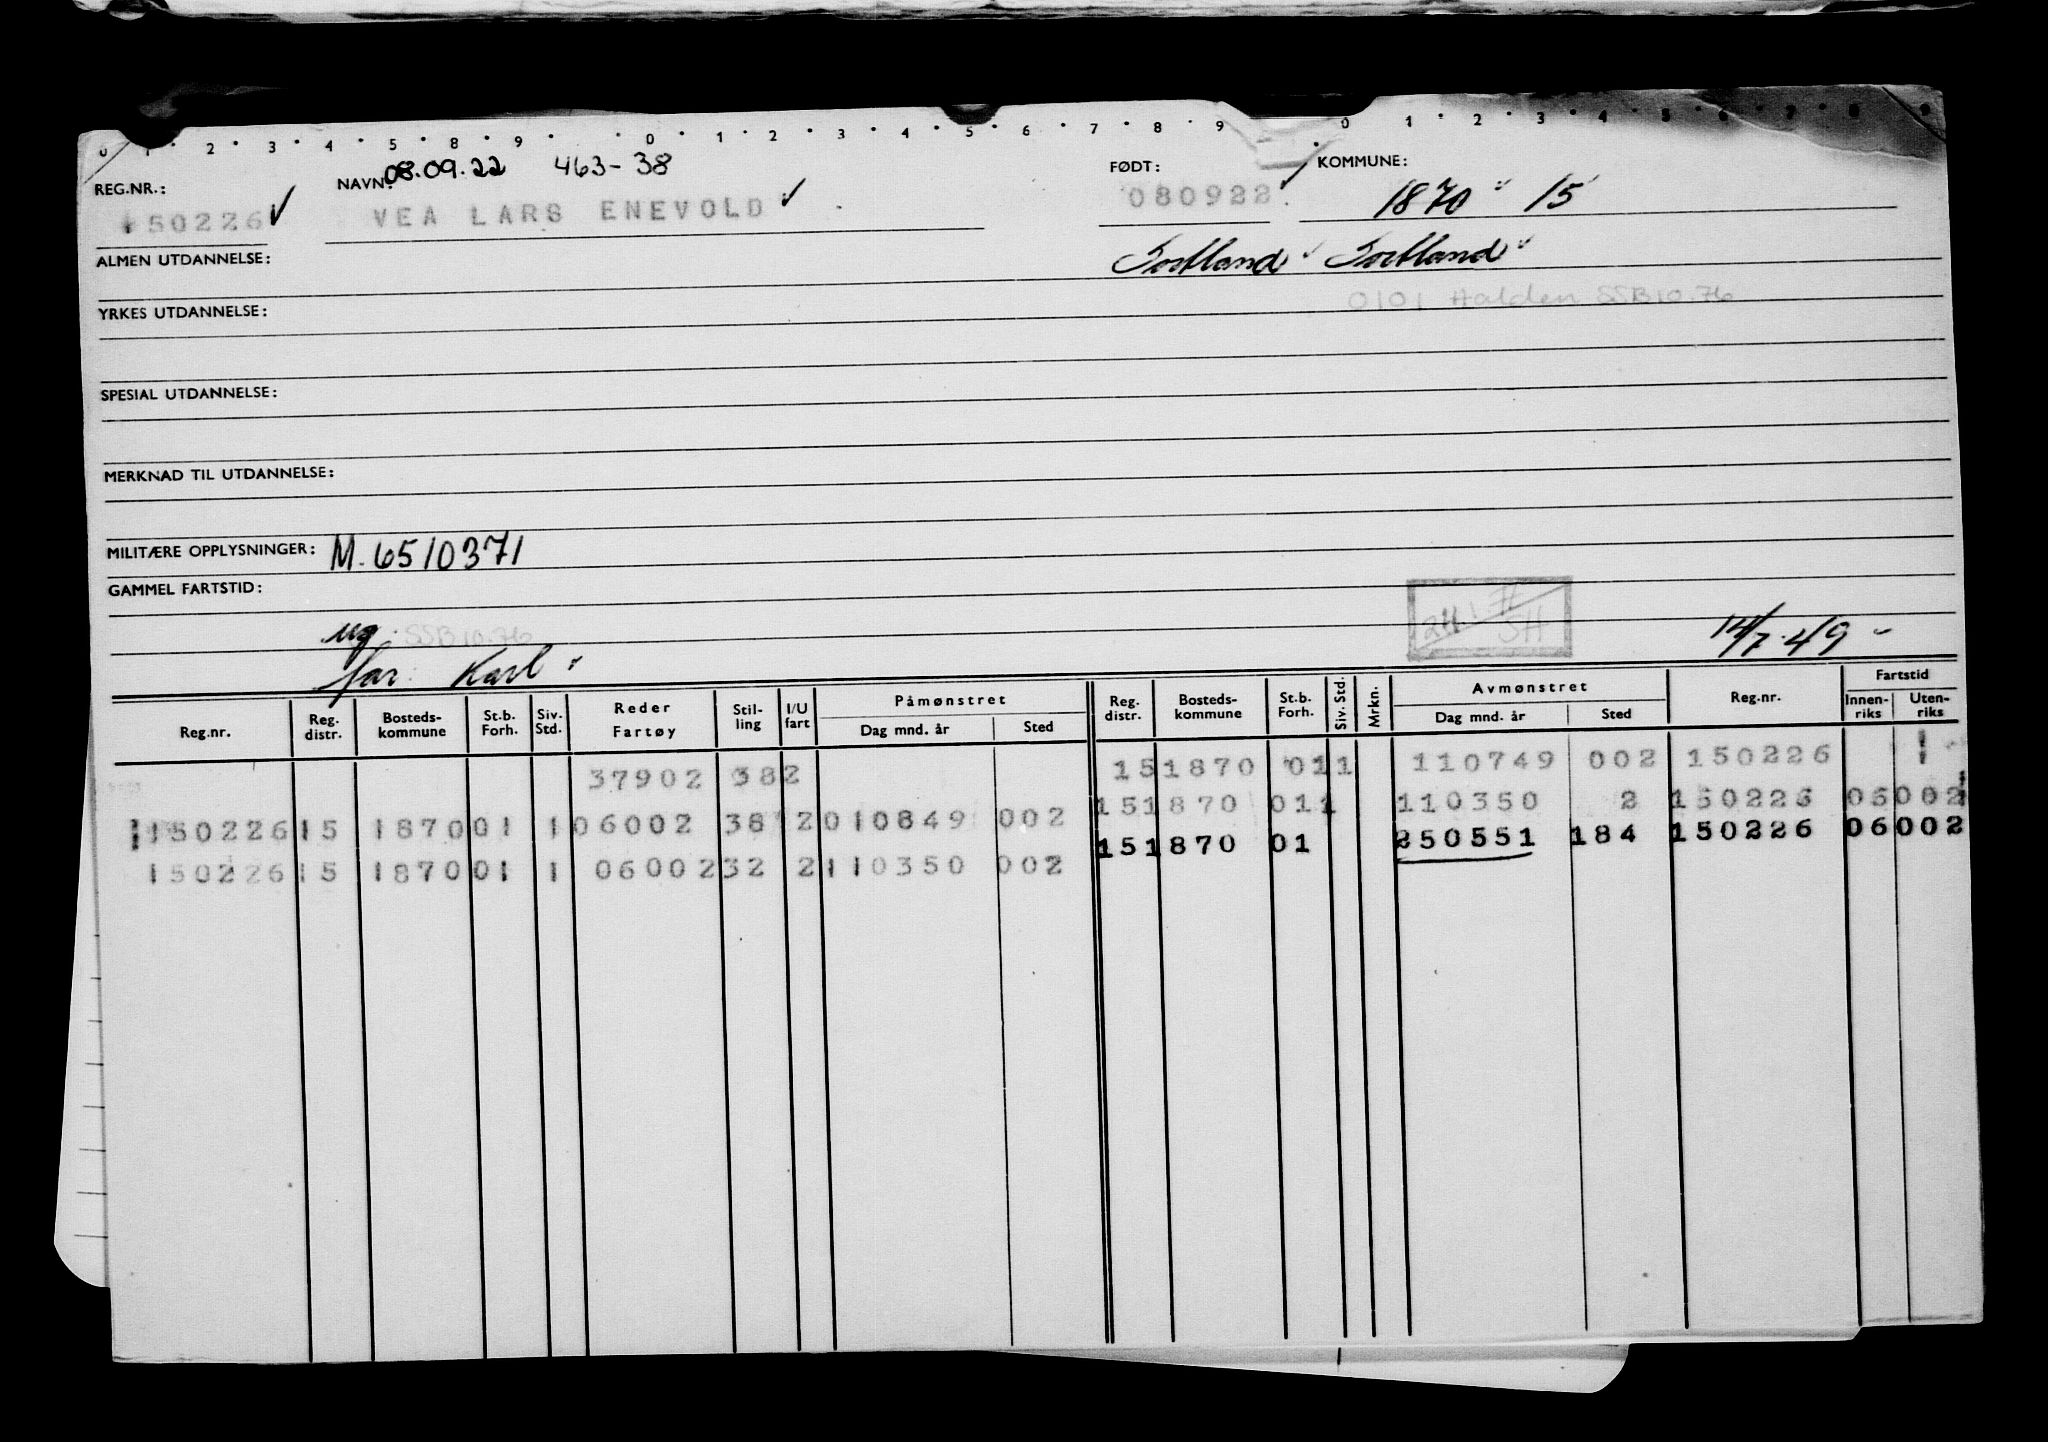 0 1 2 3 4 5 8 9 0 1 2 3 4 5 6 7 8 9 0 1 2 3 4 5 6 7 8 9
REG.NR.: NAVN: 08.09.22 463-38 FØDT: KOMMUNE:
150226 VEA LARS ENEVOLD 080922 1870 15
ALMEN UTDANNELSE: Sortland Sortland
0101 Halden SSB 10.76
YRKES UTDANNELSE:
SPESIAL UTDANNELSE:
MERKNAD TIL UTDANNELSE:
MILITÆRE OPPLYSNINGER: M. 6510371
GAMMEL FARTSTID:
ug. SSB 10.76 SH 14/7.49 -
far: Karl
Reg.nr. Reg. distr. Bosteds-kommune St.b. Forh. Siv. Std. Reder Fartøy Stil-ling I/U fart Påmønstret Dag mnd. år Sted Reg. distr. Bosteds-kommune St.b. Forh. Siv. Std. Mrkn. Avmønstret Dag mnd. år Sted Reg.nr. Fartstid Innen-riks Uten-riks
37902 38 2 15 1870 01 1 110749 002 150226 1
150226 15 1870 01 1 06002 38 2 010849 002 15 1870 01 1 110350 2 150226 06002
150226 15 1870 01 1 06002 32 2 110350 002 15 1870 01 250551 184 150226 06002